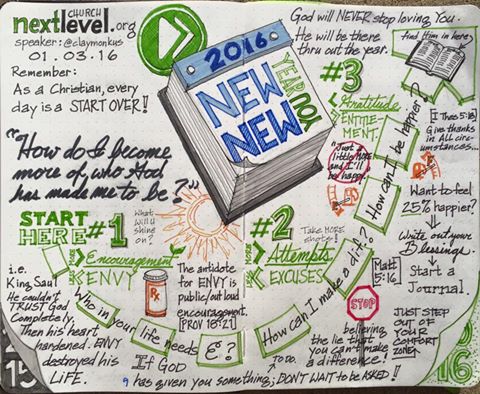 CHURCH
nextlevel.org
speaker: @claymonkus
01.03.16
Remember:
As a Christian, every
day is a START OVER!
2016
NEW
YEAR
NEW
YOU
God will NEVER stop loving you.
He will be there
thru out the year.
find Him in here
"How do I become
more of, who God
has made me to be?"
START
HERE
#1
What
will u
shine
on?
MORE
Encouragement
LESS
ENVY
i.e.
King Saul
He couldn't
TRUST God
Completely.
Then his heart
hardened. ENVY
destroyed his
LIFE.
Rx
The antidote
for ENVY is
public/out loud
encouragement.
[PROV 18:21]
Who in your life needs
E?
If God
has given you something; DON'T WAIT to be ASKED!
TO DO.
#2
Take MORE
shots!
MORE
Attempts
LESS
EXCUSES
How can I make a dif.?
Matt
5:16
STOP
believing
the lie that
you can't make
a difference!
JUST STEP
OUT OF
YOUR
COMFORT
ZONE
#3
Gratitude
ENTITLEMENT.
"Just a
little more
and I'll
be happy"
How can I be happier?
[I Thes 5:18]
Give thanks
in All circumstances...
Want to feel
25% happier?
Write out your
Blessings.
Start a
Journal
15
16